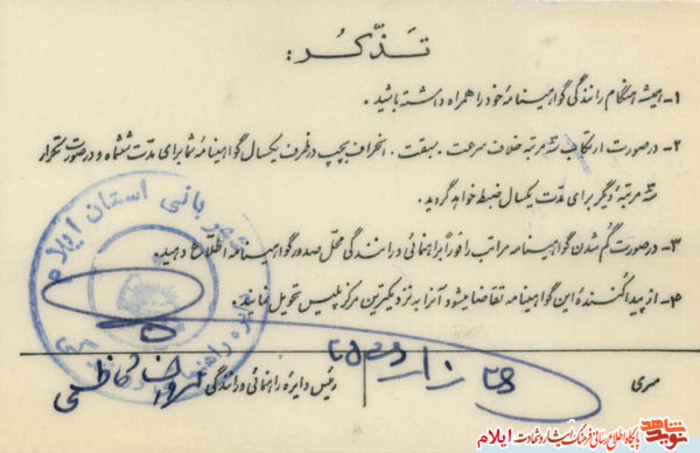 تذکر:
۱- همیشه هنگام رانندگی گواهینامه خود را همراه داشته باشید.
۲- در صورت ارتکاب سه مرتبه خلاف سرعت. سبقت. انحراف بچپ در ظرف یکسال گواهینامه شما برای مدت ششماه و در صورت تکرار
سه مرتبه دیگر برای مدت یکسال ضبط خواهد گردید.
۳- در صورت گم شدن گواهینامه مراتب را فوراً براهنمائی و رانندگی محل صدور گواهینامه اطلاع دهید.
۴- از پیدا کننده این گواهینامه تقاضا میشود آنرا به نزدیکترین مرکز پلیس تحویل نمایند.
شهربانی استان ایلام
رئیس دایره راهنمائی و رانندگی
نوید شاهد
پایگاه اطلاع رسانی فرهنگ ایثار و شهادت ایلام